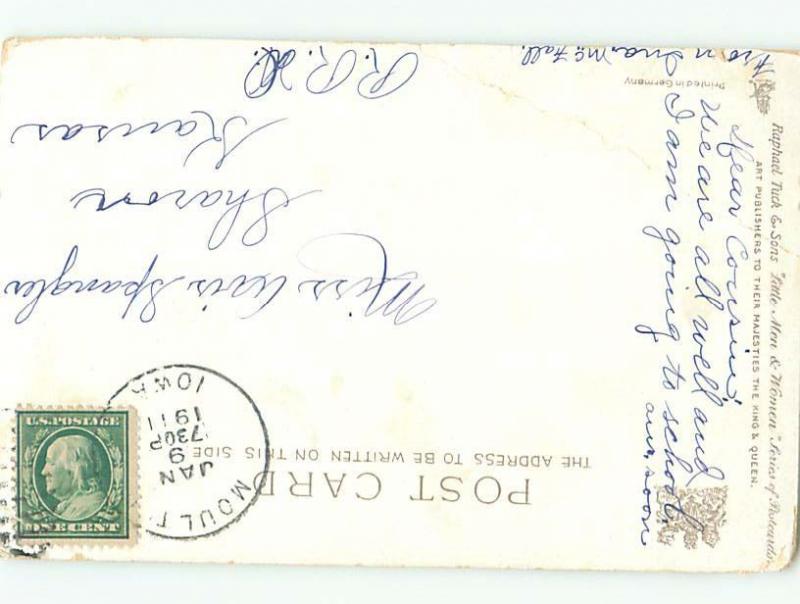 POST CARD
THE ADDRESS TO BE WRITTEN ON THIS SIDE
MOULT
IOWA
JAN
9
730P
1911
U.S. POSTAGE
ONE CENT
Miss Avis Spangler
Sharon
Kansas
R.R.
Dear Cousin,
We are all well and
I am going to school.
ans, soon
From Ina, McFall.
Printed in Germany
Raphael Tuck & Sons' "Little Men & Women" Series of Postcards
ART PUBLISHERS TO THEIR MAJESTIES THE KING & QUEEN.